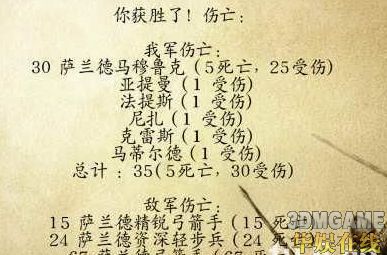 你获胜了! 伤亡:
我军伤亡:
30 萨兰德马穆鲁克 (5死亡, 25受伤)
亚提曼 (1 受伤)
法提斯 (1 受伤)
尼扎 (1 受伤)
克雷斯 (1 受伤)
马蒂尔德 (1 受伤)
总计 : 35(5死亡, 30受伤)
敌军伤亡:
15 萨兰德精锐弓箭手 (15 死
24 萨兰德资深轻步兵 (24
萨兰德弓箭手
3DMGAME
华娱在线